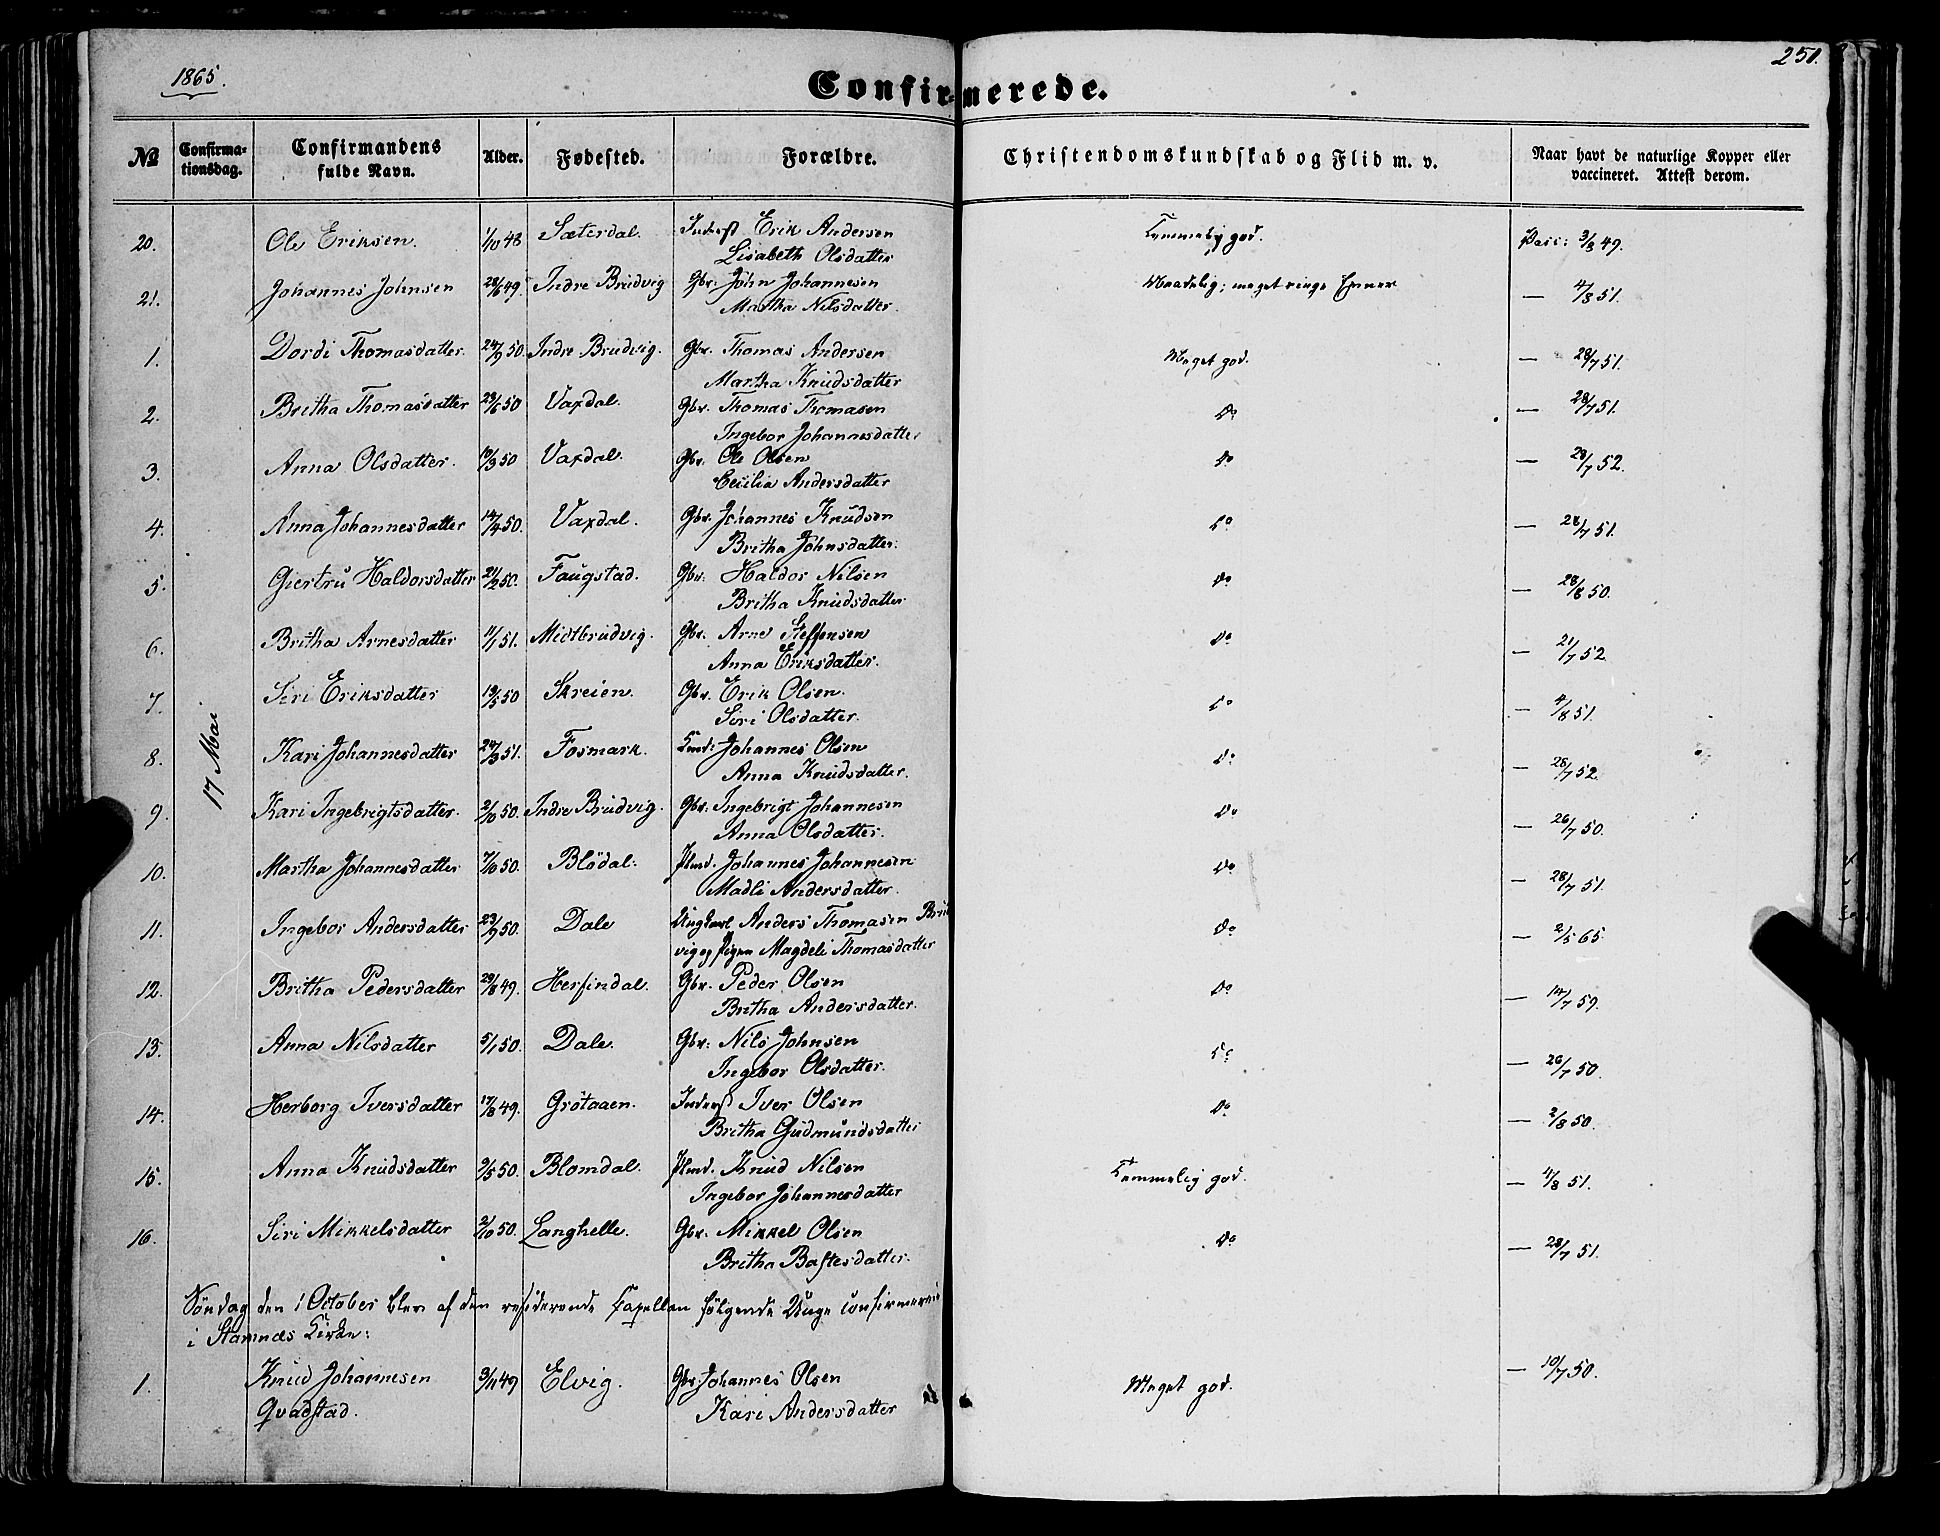 1865.
250.
Confirmerede.
No Confirmationsdag. Confirmandens fulde Navn. Alder. Fødested. Forældre. Christendomskundskab og Flid m. v. Naar havt de naturlige Kopper eller vaccineret. Attest derom.
17 Mai
20. Ole Eriksen. 1/10 48 Sæterdal. Inderst Erik Andersen Temmelig god. Vacc: 3/8 49.
Lisabeth Olsdatter
21. Johannes Johnsen 28/6 49. Indre Brudvig Gbr. John Johannesen Maadelig; meget ringe Evner — 4/8 51.
Martha Nilsdatter.
1. Dordi Thomasdatter. 24/9 50. Indre Brudvig. Gbr. Thomas Andersen Meget god. — 28/7 51.
Martha Knudsdatter
2. Britha Thomasdatter 23/6 50 Vaxdal. Gbr. Thomas Thomasen Do — 28/7 51.
Ingebor Johannesdatter
3. Anna Olsdatter. 10/3 50 Vaxdal. Gbr. Ole Olsen Do — 28/7 52.
Cecilia Andersdatter
4. Anna Johannesdatter 14/4 50. Vaxdal. Gbr. Johannes Knudsen Do — 28/7 51.
Britha Johnsdatter.
5. Giertru Haldorsdatter 21/2 50. Faugstad. Gbr. Haldor Nilsen Do — 28/8 50.
Britha Knudsdatter
6. Britha Arnesdatter 11/1 51. Midtbrudvig. Gbr. Arne Steffensen Do — 21/7 52
Anna Eriksdatter.
7. Siri Eriksdatter 19/5 50 Skreien. Gbr. Erik Olsen. Do — 4/8 51.
Siri Olsdatter.
8. Kari Johannesdatter 24/3 51. Fosmark. Johannes Olsen Do — 28/7 52.
Anna Knudsdatter.
9. Kari Ingebrigtsdatter. 2/10 50. Indre Brudvig. Gbr. Ingebrigt Johannesen Do — 26/7 50.
Anna Olsdatter.
10. Martha Johannesdatter 7/10 50. Blödal. Plmd. Johannes Johannesen Do — 28/7 51.
Madli Andersdatter.
11. Ingebor Andersdatter 23/9 50. Dale Ungkarl Anders Thomasen Brud Do — 2/5 65.
vig og Pigen Magdeli Thomasdatter
12. Britha Pedersdatter 29/8 49. Herfindal. Gbr. Peder Olsen Do — 14/7 59.
Britha Andersdatter.
13. Anna Nilsdatter 5/1 50. Dale. Gbr. Nils Johnsen Do — 26/7 50.
Ingebor Olsdatter.
14. Herborg Iversdatter 17/8 49. Grötaaen. Inderst Iver Olsen Do — 2/8 50.
Britha Gudmundsdatter
15. Anna Knudsdatter 9/5 50. Blomdal. Plmd. Knud Nilsen Temmelig god. — 4/8 51.
Ingebor Johannesdatter
16. Siri Mikkelsdatter 2/10 50. Langhelle. Gbr. Mikkel Olsen Do — 28/7 51.
Britha Bastesdatter.
Söndag den 1 October blev af den residerende Capellan følgende Unge confirmerede
i Stamnæs Kirke:
1. Knud Johannesen 3/11 49 Elvig. Gbr. Johannes Olsen Meget god. — 10/7 50.
Qvadstad. Kari Andersdatter